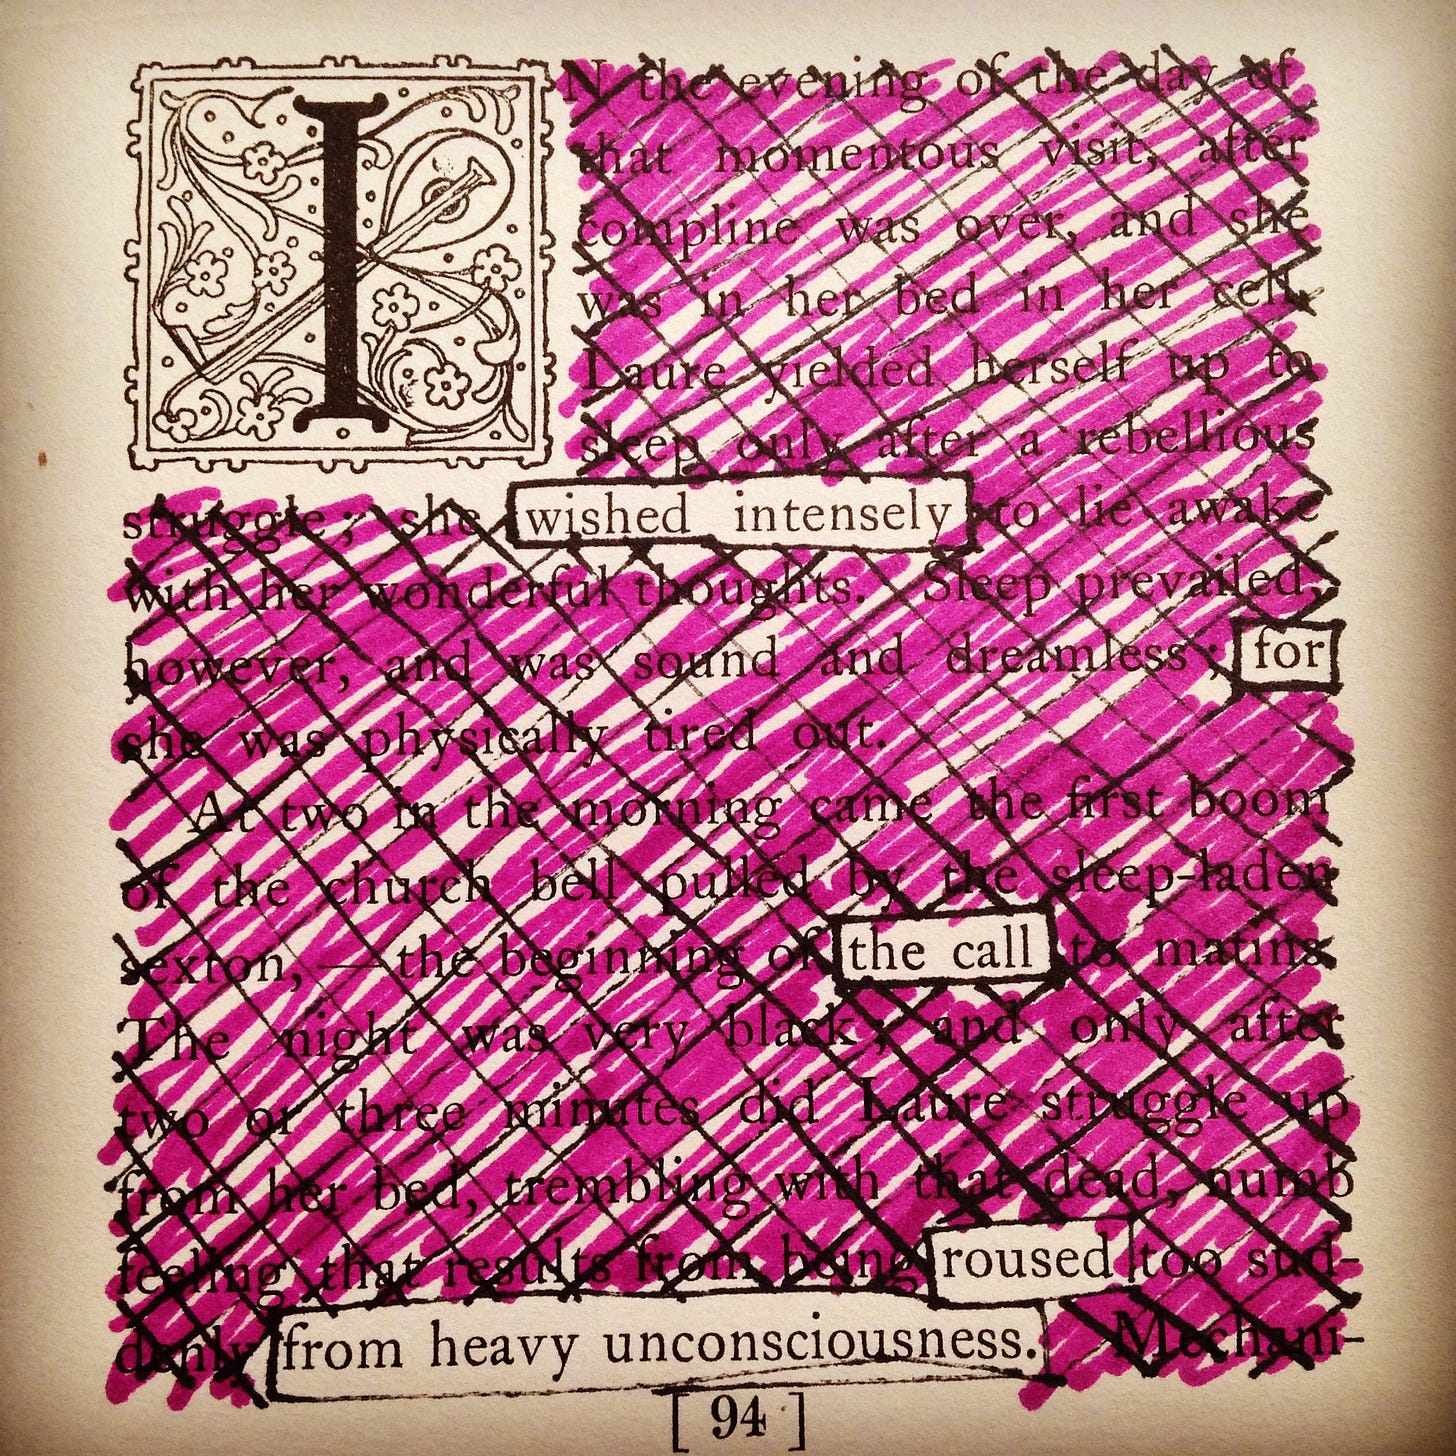 IN the evening of the day of
that momentous visit, after
compline was over, and she
was in her bed in her cell,
Laure yielded herself up to
sleep only after a rebellious
struggle; she wished intensely to lie awake
with her wonderful thoughts. Sleep prevailed,
however, and was sound and dreamless; for
she was physically tired out.
At two in the morning came the first boom
of the church bell pulled by the sleep-laden
sexton,—the beginning of the call to matins.
The night was very black; and only after
two or three minutes did Laure struggle up
from her bed, trembling with that dead, numb
feeling that results from being roused too sud-
denly from heavy unconsciousness. Mechani-
[ 94 ]